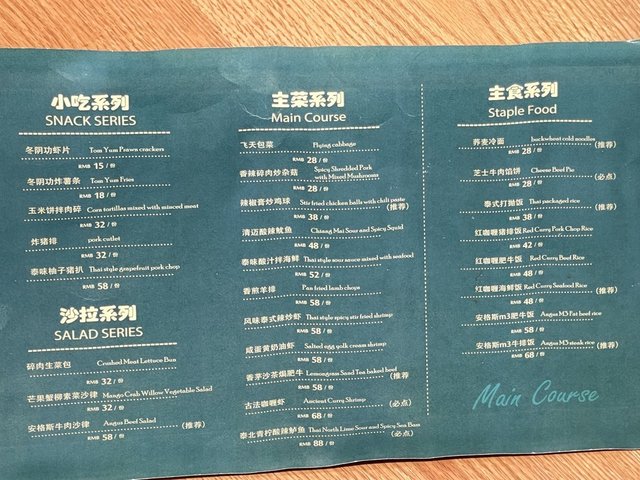 小吃系列
SNACK SERIES
冬阴功虾片 Tom Yum Prawn crackers
RMB 15 / 份
冬阴功炸薯条 Tom Yum Fries
RMB 18 / 份
玉米饼拌肉碎 Corn tortillas mixed with minced meat
RMB 32 / 份
炸猪排 pork cutlet
RMB 32 / 份
泰味柚子猪扒 Thai style grapefruit pork chop
RMB 58 / 份
沙拉系列
SALAD SERIES
碎肉生菜包 Crushed Meat Lettuce Bun
RMB 32 / 份
芒果蟹柳素菜沙律 Mango Crab Willow Vegetable Salad
RMB 32 / 份
安格斯牛肉沙律 Angus Beef Salad (推荐)
RMB 58 / 份
主菜系列
Main Course
飞天包菜 Flying cabbage
RMB 28 / 份
香辣碎肉炒杂菇 Spicy Shredded Pork
with Mixed Mushrooms
RMB 28 / 份
辣椒膏炒鸡球 Stir fried chicken balls with chili paste
RMB 38 / 份 (推荐)
清迈酸辣鱿鱼 Chiang Mai Sour and Spicy Squid
RMB 48 / 份
泰味酸汁拌海鲜 Thai style sour sauce mixed with seafood
RMB 52 / 份
香煎羊排 Pan fried lamb chops
RMB 58 / 份
风味泰式辣炒虾 Thai style spicy stir fried shrimp
RMB 58 / 份
咸蛋黄奶油虾 Salted egg yolk cream shrimp
RMB 58 / 份
香茅沙茶焗肥牛 Lemongrass Sand Tea baked beef
RMB 58 / 份 (推荐
古法咖喱虾 Ancient Curry Shrimp
RMB 68 / 份 (必点)
泰北青柠酸辣鲈鱼 Thai North Lime Sour and Spicy Sea Bass
RMB 88 / 份 (必点)
主食系列
Staple Food
荞麦冷面 buckwheat cold noodles
RMB 28 / 份 (推荐)
芝士牛肉馅饼 Cheese Beef Pie
RMB 28 / 份 (必点)
泰式打抛饭 Thai packaged rice
RMB 38 / 份 (推荐)
红咖喱猪排饭 Red Curry Pork Chop Rice
RMB 42 / 份
红咖喱肥牛饭 Red Curry Beef Rice
RMB 48 / 份
红咖喱海鲜饭 Red Curry Seafood Rice
RMB 48 / 份 (推荐)
安格斯m3肥牛饭 Angus M3 Fat beef rice
RMB 58 / 份
安格斯m3牛排饭 Angus M3 steak rice (推荐)
RMB 68 / 份
Main Course